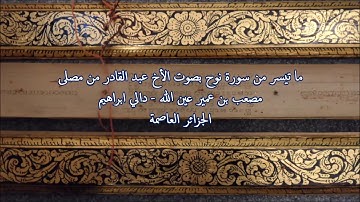 ما تيسر من سورة نوح بصوت الأخ عبد القادر من مصلى
مصعب بن عمير عين الله - دالي ابراهيم
الجزائر العاصمة